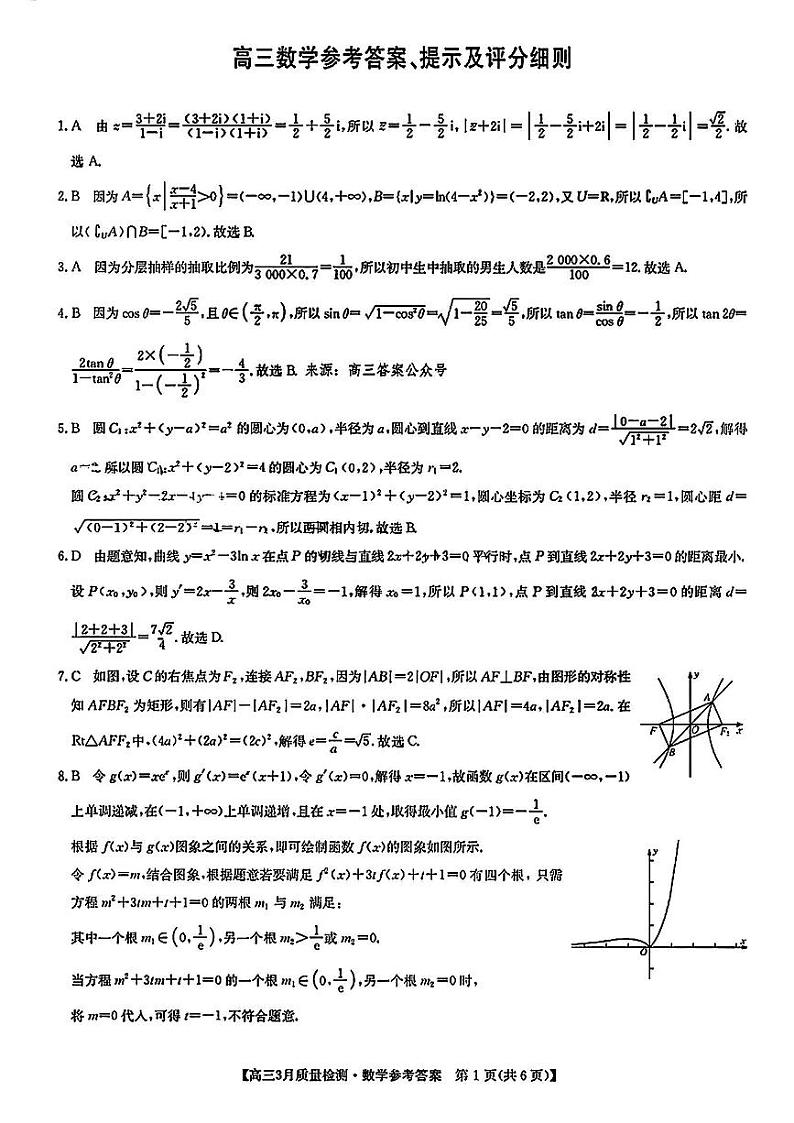 高三数学参考答案、提示及评分细则
1. A 由 z=\frac{3+2i}{1-i}=\frac{(3+2i)(1+i)}{(1-i)(1+i)}=\frac{1}{2}+\frac{5}{2}i,所以 \bar{z}=\frac{1}{2}-\frac{5}{2}i, |\bar{z}+2i|=|\frac{1}{2}-\frac{5}{2}i+2i|=|\frac{1}{2}-\frac{1}{2}i|=\frac{\sqrt{2}}{2}. 故
选 A.
2. B 因为 A={x|\frac{x-4}{x+1}>0}=(-∞,-1)∪(4,+∞),B={x|y=ln(4-x²)}=(-2,2),又 U=R,所以 ∁_UA=[-1,4],所
以(∁_UA)∩B=[-1,2). 故选 B.
3. A 因为分层抽样的抽取比例为\frac{21}{3 000×0.7}=\frac{1}{100},所以初中生中抽取的男生人数是\frac{2 000×0.6}{100}=12. 故选 A.
4. B 因为 cos θ=-\frac{2\sqrt{5}}{5},且 θ∈(\frac{π}{2},π),所以 sin θ=\sqrt{1-cos²θ}=\sqrt{1-\frac{20}{25}}=\frac{\sqrt{5}}{5},所以 tan θ=\frac{sin θ}{cos θ}=-\frac{1}{2},所以 tan 2θ=
\frac{2tan θ}{1-tan²θ}=\frac{2×(-\frac{1}{2})}{1-(-\frac{1}{2})²}=-\frac{4}{3}. 故选 B. 来源：高三答案公众号
5. B 圆 C₁:x²+(y-a)²=a² 的圆心为(0,a),半径为 a,圆心到直线 x-y-2=0 的距离为 d=\frac{|0-a-2|}{\sqrt{1²+1²}}=2\sqrt{2},解得
所以圆 C₁:x²+(y-2)²=4 的圆心为 C₁(0,2),半径为 r₁=2.
圆 C₂:x²+y²-2x-4y+4=0 的标准方程为(x-1)²+(y-2)²=1,圆心坐标为 C₂(1,2),半径 r₂=1,圆心距 d=
\sqrt{(0-1)²+(2-2)²}=1=r₁-r₂,所以两圆相内切. 故选 B.
6. D 由题意知,曲线 y=x²-3ln x 在点 P 的切线与直线 2x+2y+3=0 平行时,点 P 到直线 2x+2y+3=0 的距离最小.
设 P(x₀,y₀),则 y′=2x-\frac{3}{x},则 2x₀-\frac{3}{x₀}=-1,解得 x₀=1,所以 P(1,1),点 P 到直线 2x+2y+3=0 的距离 d=
\frac{|2+2+3|}{\sqrt{2²+2²}}=\frac{7\sqrt{2}}{4}. 故选 D.
7. C 如图,设 C 的右焦点为 F₂,连接 AF₂,BF₂,因为|AB|=2|OF|,所以 AF⊥BF,由图形的对称性
知 AFBF₂ 为矩形,则有|AF|-|AF₂|=2a,|AF|·|AF₂|=8a²,所以|AF|=4a,|AF₂|=2a. 在
Rt△AFF₂中,(4a)²+(2a)²=(2c)²,解得 e=\frac{c}{a}=\sqrt{5}. 故选 C.
y
A
F
O
F₂
x
B
8. B 令 g(x)=xeˣ,则 g′(x)=eˣ(x+1),令 g′(x)=0,解得 x=-1,故函数 g(x)在区间(-∞,-1)
上单调递减,在(-1,+∞)上单调递增,且在 x=-1 处,取得最小值 g(-1)=-\frac{1}{e}.
根据 f(x)与 g(x)图象之间的关系,即可绘制函数 f(x)的图象如图所示.
令 f(x)=m,结合图象,根据题意若要满足 f²(x)+3tf(x)+t+1=0 有四个根,只需
方程 m²+3tm+t+1=0 的两根 m₁ 与 m₂ 满足:
其中一个根 m₁∈(0,\frac{1}{e}),另一个根 m₂>\frac{1}{e}或 m₂=0.
当方程 m²+3tm+t+1=0 的一个根 m₁∈(0,\frac{1}{e}),另一个根 m₂=0 时,
将 m=0 代入,可得 t=-1,不符合题意.
y
O
x
【高三3月质量检测·数学参考答案 第 1 页(共 6 页)】